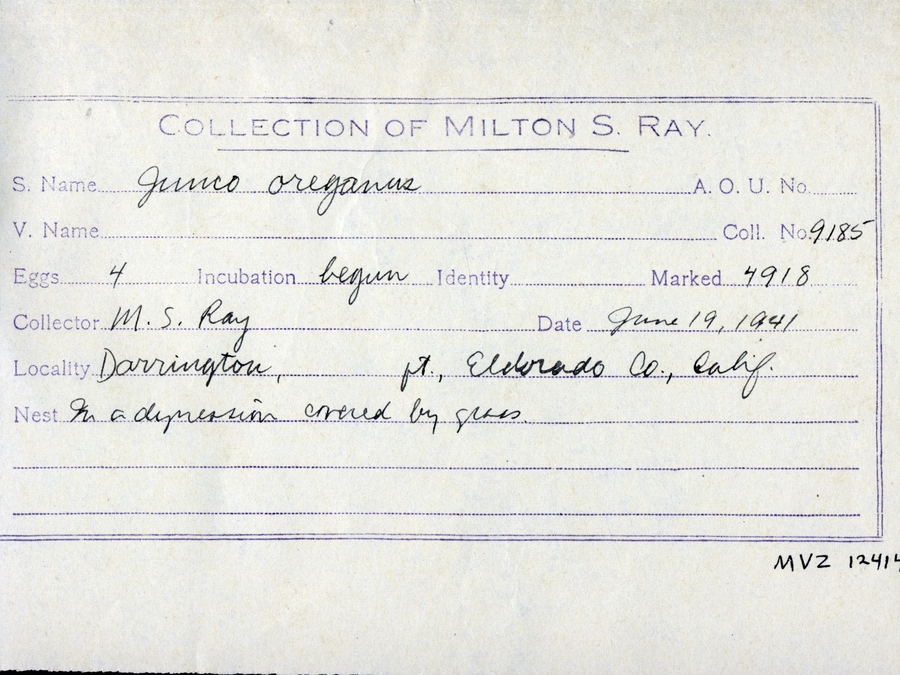 COLLECTION OF MILTON S. RAY.
S. Name Junco oreganus A. O. U. No.
V. Name Coll. No. 9185
Eggs 4 Incubation begun Identity Marked 4918
Collector M. S. Ray Date June 19, 1941
Locality Darrington, ft., Eldorado Co., Calif.
Nest In a depression covered by grass.
MVZ 12414